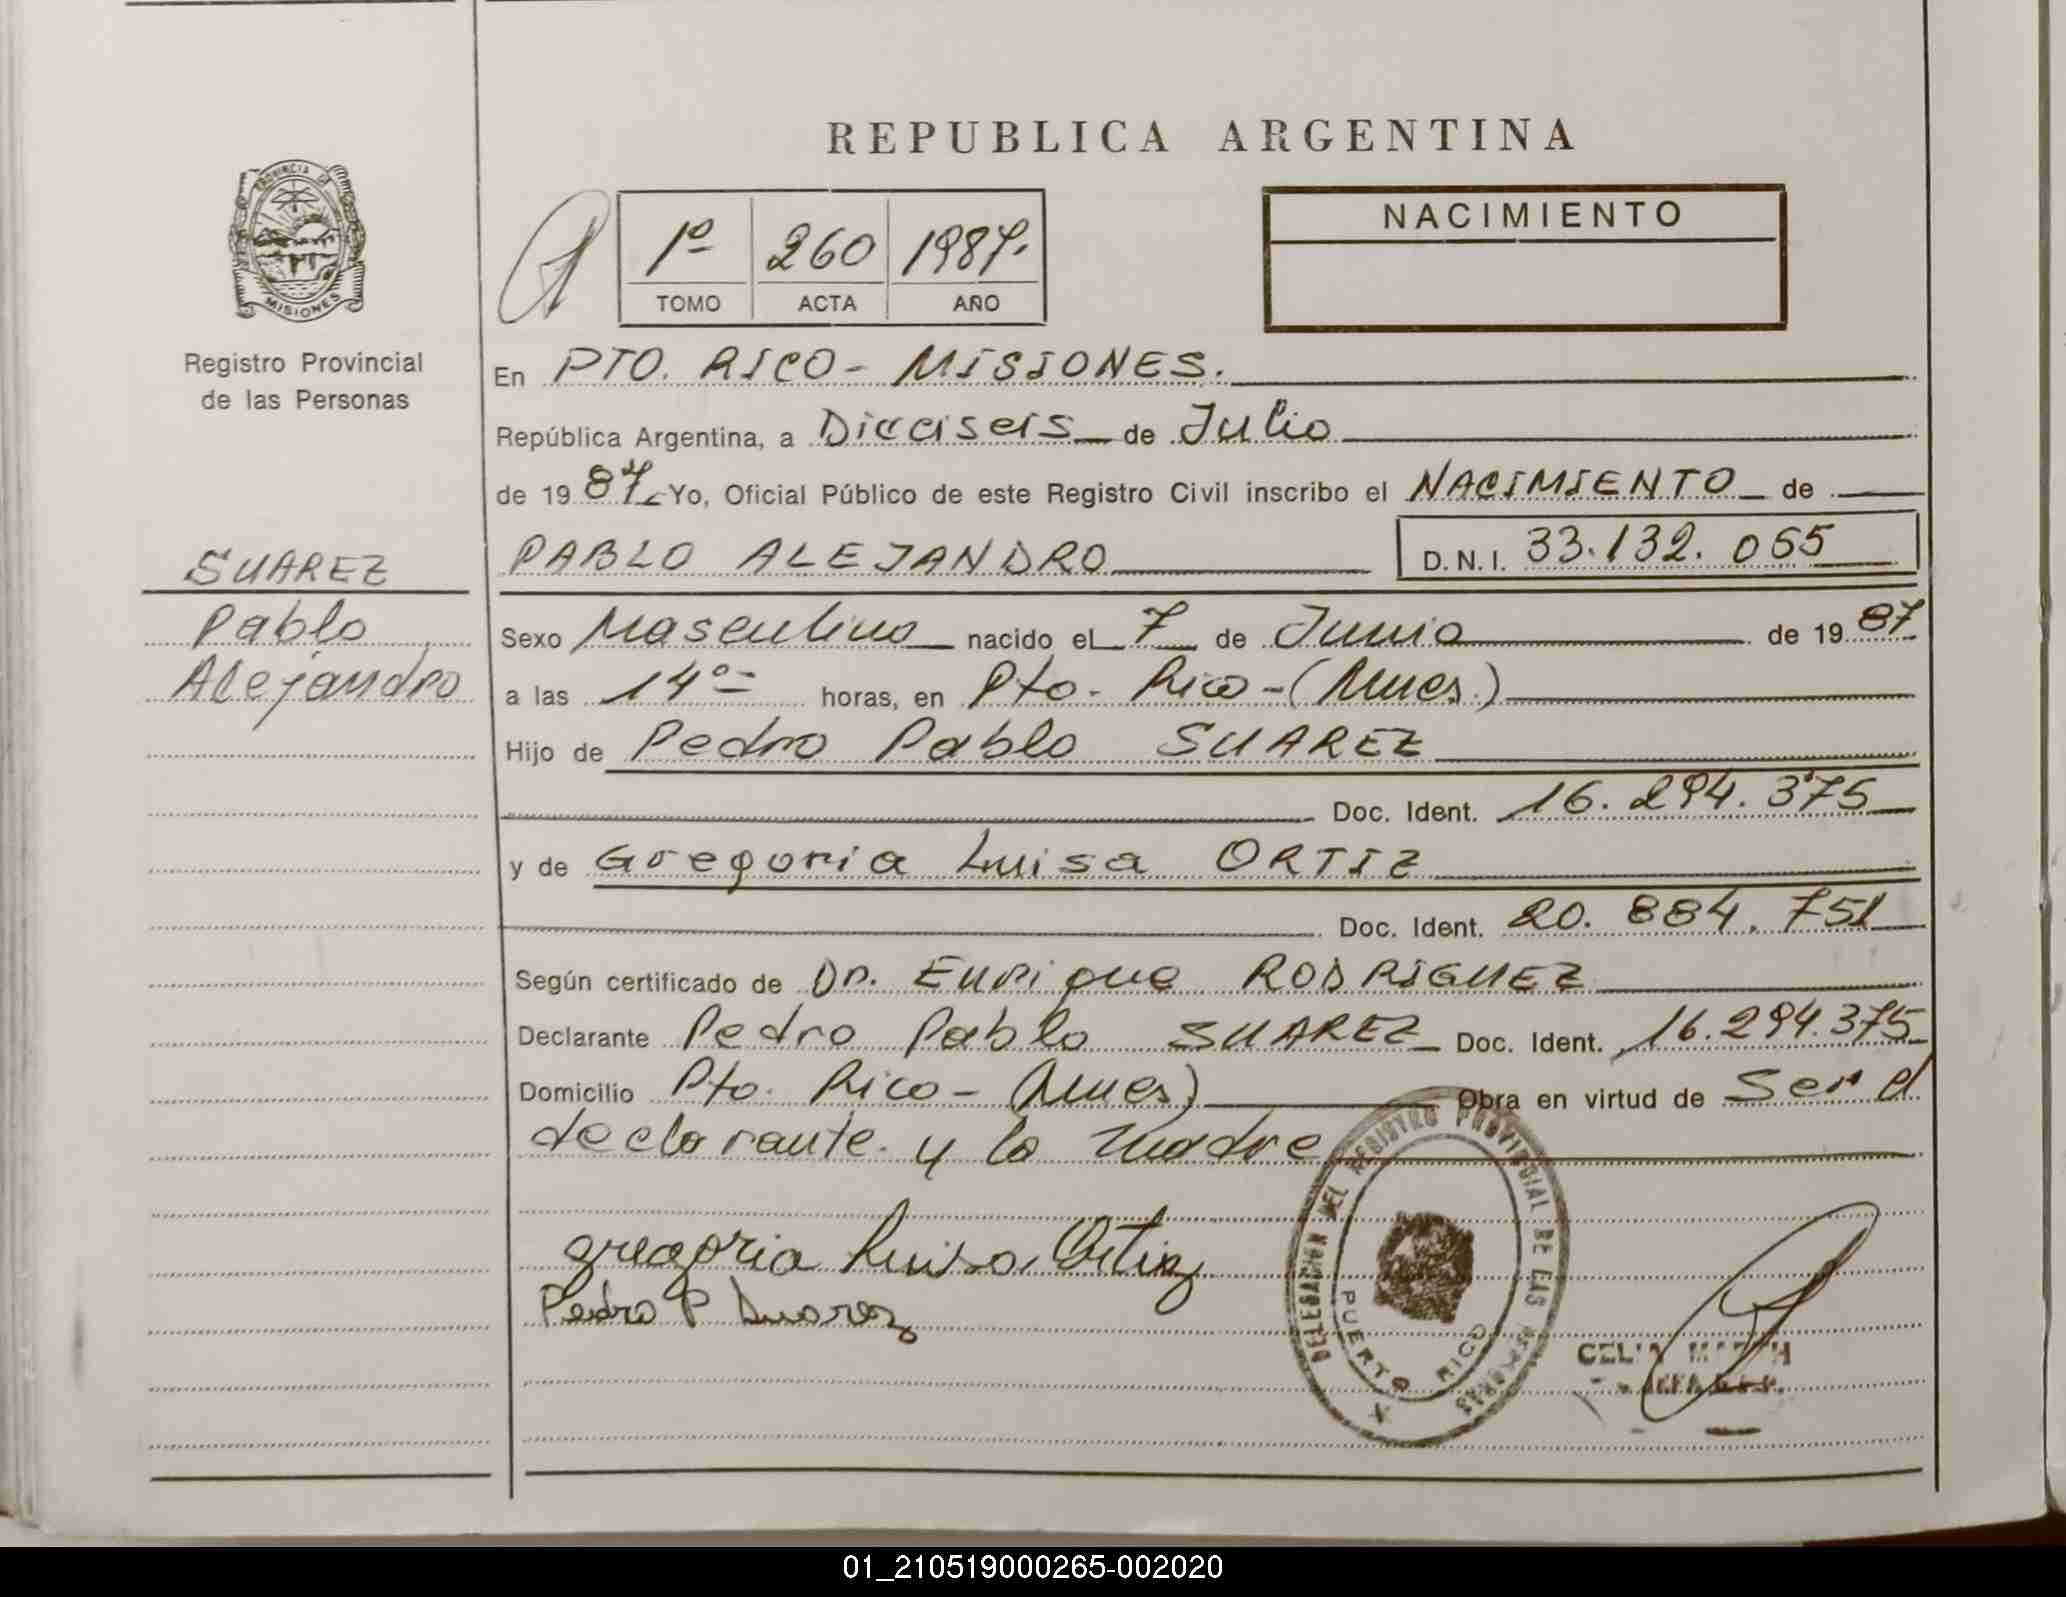 REPUBLICA ARGENTINA
PROVINCIA DE
MISIONES
Registro Provincial
de las Personas
1º 260 1987.
TOMO ACTA AÑO
NACIMIENTO
En PTO. RICO - MISIONES.
República Argentina, a Dieciseis de Julio
de 19 87 Yo, Oficial Público de este Registro Civil inscribo el NACIMIENTO de
SUAREZ
Pablo
Alejandro
PABLO ALEJANDRO D.N.I. 33.132.065
Sexo Masculino nacido el 7 de Junio de 19 87
a las 14º= horas, en Pto. Rico - (Mnes.)
Hijo de Pedro Pablo SUAREZ
Doc. Ident. 16.294.375
y de Gregoria Luisa ORTIZ
Doc. Ident. 20.884.751
Según certificado de Dr. Enrique RODRIGUEZ
Declarante Pedro Pablo SUAREZ Doc. Ident. 16.294.375
Domicilio Pto. Rico - (Mnes) Obra en virtud de Ser el
declarante y la madre
gregoria Luisa Ortiz
Pedro P Suarez
DELEGACION DEL REGISTRO PROVINCIAL DE LAS PERSONAS
PUERTO RICO
01_210519000265-002020